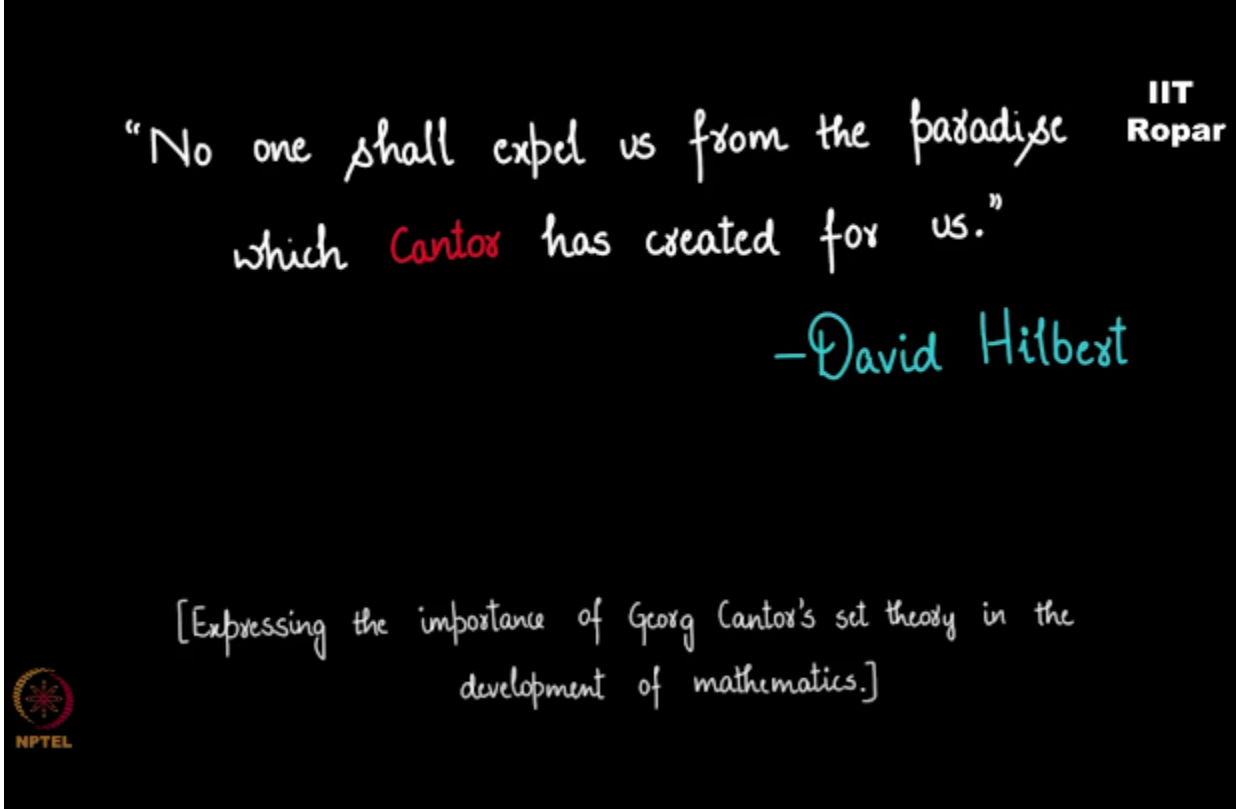 "No one shall expel us from the paradise
which Cantor has created for us."
-David Hilbert
[Expressing the importance of Georg Cantor's set theory in the
development of mathematics.]
IIT
Ropar
NPTEL